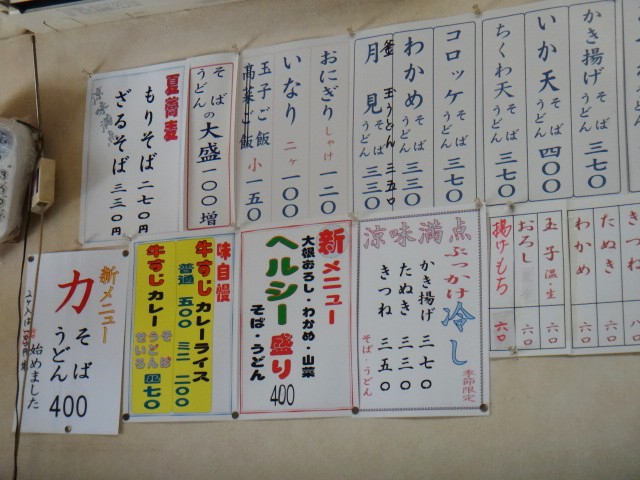 かき揚げ そば うどん 三七〇
いか天 そば うどん 四〇〇
ちくわ天 そば うどん 三七〇
コロッケ そば うどん 三七〇
わかめ そば うどん 三三〇
釜玉うどん 三五〇
月見 そば うどん 三三〇
おにぎり しゃけ 一二〇
いなり 二ヶ 一〇〇
玉子ご飯
高菜ご飯 小 一五〇
そば うどん の大盛 一〇〇増
夏蕎麦
もりそば 二七〇円
ざるそば 三三〇円
きつね
たぬき
わかめ 六〇
玉子 温・生 六〇
おろし 六〇
揚げもち 六〇
涼味満点
ぶっかけ冷し
かき揚げ 三七〇
たぬき 三三〇
きつね 三五〇
そば・うどん
季節限定
新メニュー
大根おろし・わかめ・山菜
ヘルシー盛り
そば・うどん 400
味自慢
牛すじカレーライス
普通 五〇〇 ミニ 二〇〇
牛すじカレー
そば うどん せいろ 四七〇
新メニュー
力 そば うどん 400
始めました